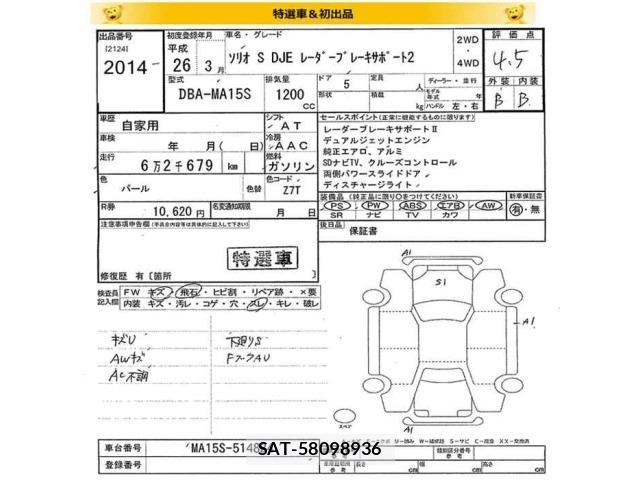 特選車&初出品
出品番号
[2124]
2014
初度登録年月
平成
26年 3月
車名・グレード
ソリオ S DJE レーダーブレーキサポート2
2WD
・
4WD
評価点
4.5
外装 内装
B B
型式
DBA-MA15S
排気量
1200
CC
ドア 5
形状
定員 人
積載 kg
ディーラー・並行
モデル年式 年
ハンドル 左・右
車歴
自家用
車検
年 月(日)
走行
6万2千679 km
色
パール
色替
シフト
AT
冷房
AAC
燃料
ガソリン
色コード
Z7T
R券
10,620 円
名変通知期限
月 日
セールスポイント(正常に機能するものに限ります)
レーダーブレーキサポートⅡ
デュアルジェットエンジン
純正エアロ、アルミ
SDナビTV、クルーズコントロール
両側パワースライドドア
ディスチャージライト
装備品(純正品に限り○をつけてください)
PS PW ABS エアB AW
SR ナビ TV カワ
新車保証書
有・無
後日品 保証書
注意事項申告欄
特選車
修復歴 有 [箇所 ]
検査員記入欄
FW キズ・飛石・ヒビ割・リペア跡・×要
内装 キズ・汚レ・コゲ・穴・スレ・キレ・破レ
キズU
AWキズ
AC不調
下廻りS
FフークAU
A1
S1
A1
A1
スペア
車台番号
MA15S-5148
SAT-58098936
登録番号
長さ cm
幅 cm
高さ cm